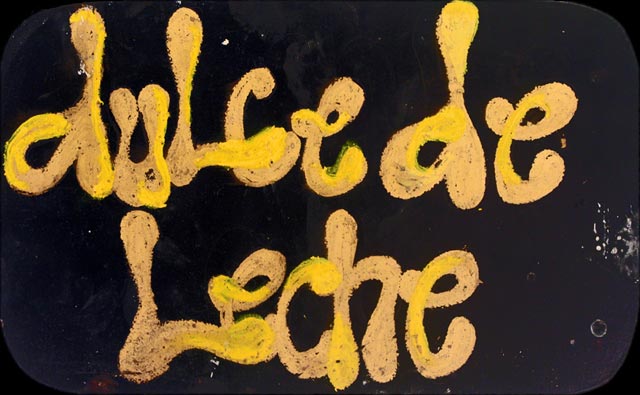 dulce de
Leche